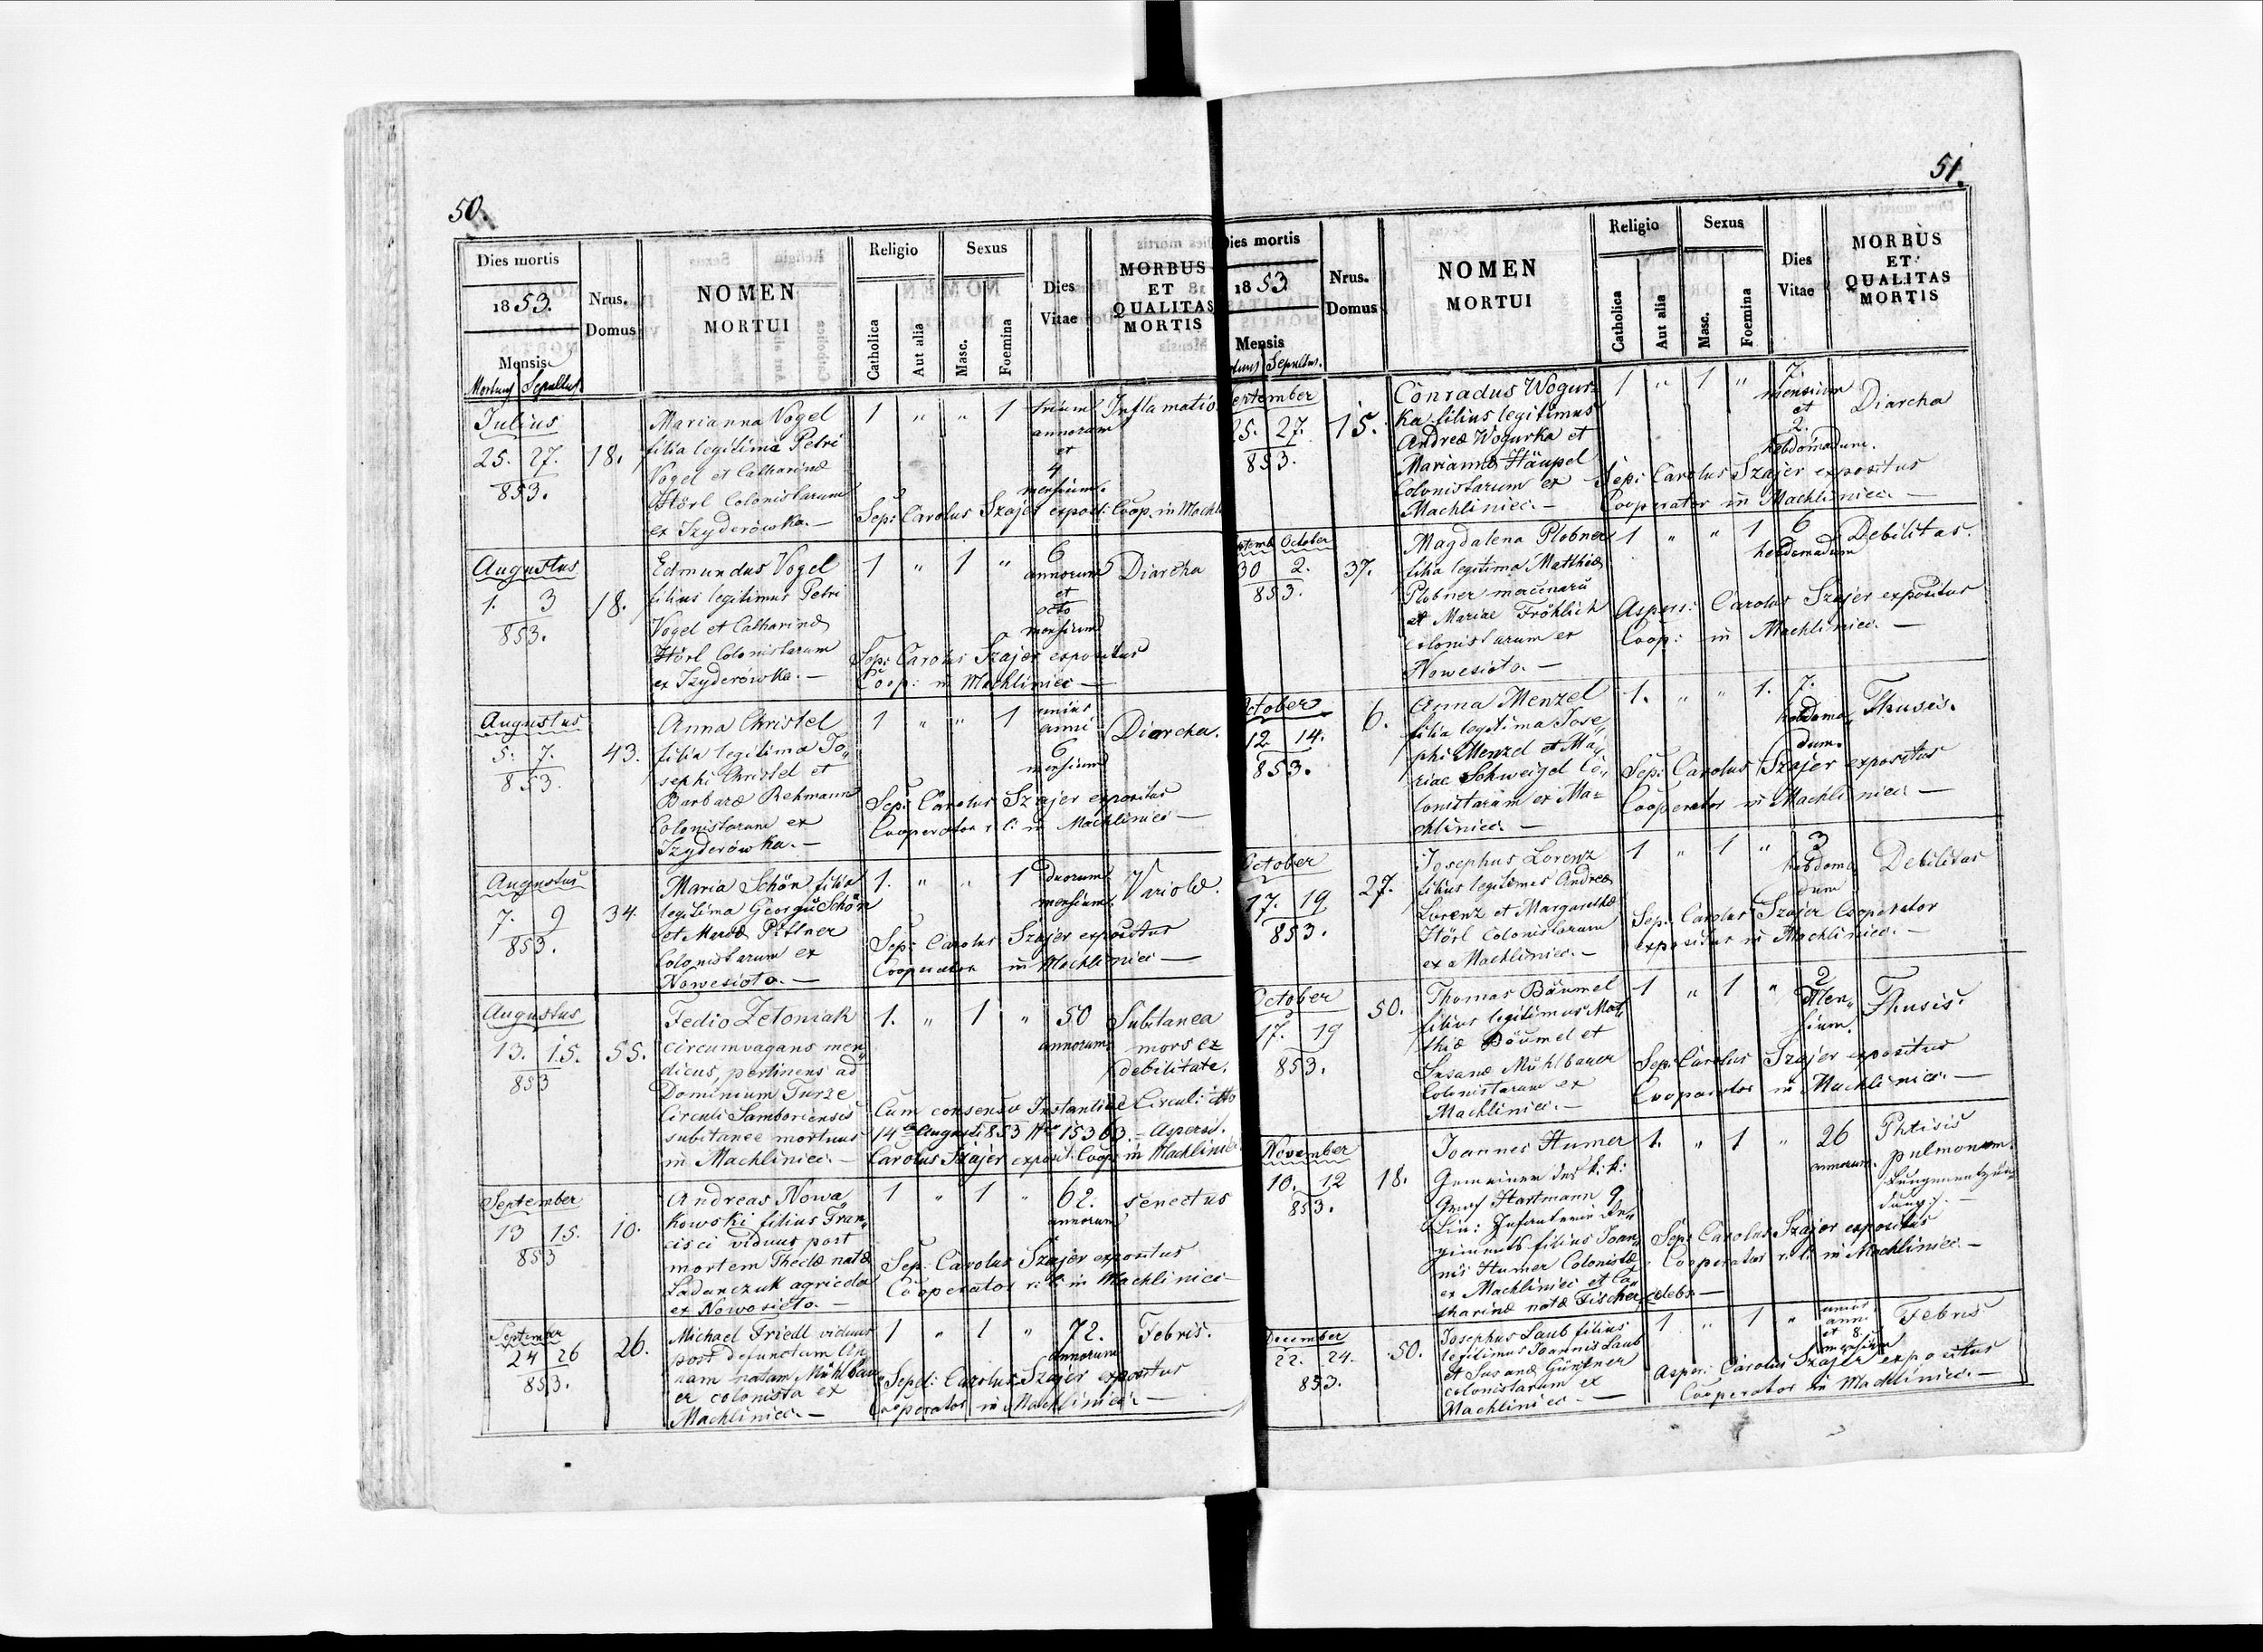 50.
Dies mortis
1853.
Mensis
Mortuus Sepultus
Nrus.
Domus
NOMEN
MORTUI
Religio
Catholica
Aut alia
Sexus
Masc.
Foemina
Dies
Vitae
MORBUS
ET
QUALITAS
MORTIS
Julius
25. 27.
853.
18.
Marianna Vogel
filia legitima Petri
Vogel et Catharinæ
Hörl Colonistarum
ex Izyderówka.—
1 " " 1
trium
annorum
et
4
mensium.
Inflamatio
Sep: Carolus Szajer exposit: Coop. in Machl
Augustus
1. 3
853.
18.
Edmundus Vogel
filius legitimus Petri
Vogel et Catharinæ
Hörl Colonistarum
ex Izyderówka.—
1 " 1 "
6
annorum
et
octo
mensium
Diarcha
Sep: Carolus Szajer expositus
Coop: in Machliniec—
Augustus
5. 7.
853.
43.
Anna Christel
filia legitima Jo„
sephi Christel et
Barbaræ Rehmann
Colonistarum ex
Izyderówka.—
1 " " 1
unius
anni
6
mensium
Diarcha.
Sep: Carolus Szajer expositus
Cooperator r. l: in Machliniec—
Augustus
7. 9
853.
34.
Maria Schön filia
legitima Georgii Schön
et Mariæ Pittner
Colonistarum ex
Nowesioto.—
1. " " 1
duorum
mensium.
Variolæ.
Sep: Carolus Szajer expositus
Cooperator in Machliniec—
Augustus
13. 15.
853
55.
Fedio Zetoniak
circumvagans men„
dicus, pertinens ad
Dominium Turze
Circuli Samboriensis
subitanee mortuus
in Machliniec.—
1. " 1 "
50
annorum
Subitanea
mors ex
debilitate.
Cum consensu Instantiæ Circul: dtto
14 Augusti 853 Nro 15363.— Aspersi.
Carolus Szajer exposit: Coop: in Machliniec
September
13 15.
853
10.
Andreas Nowa„
kowski filius Fran„
cisci viduus post
mortem Theclæ natæ
Ladanczuk agricola
ex Nowosioto.—
1 " 1 "
62.
annorum
senectus
Sep: Carolus Szajer expositus
Cooperator r: l: in Machliniec—
September
24 26
853.
26.
Michael Friedl viduus
post defunctam An„
nam natam Mühlbau„
er colonista ex
Machliniec.—
1 " 1 "
72.
annorum
Febris.
Sepel: Carolus Szajer expositus
Cooperator in Machliniec.—
51.
Dies mortis
1853.
Mensis
Sepultus.
Nrus.
Domus
NOMEN
MORTUI
Religio
Catholica
Aut alia
Sexus
Masc.
Foemina
Dies
Vitae
MORBUS
ET
QUALITAS
MORTIS
September
25. 27.
853.
15.
Conradus Wogur„
ka filius legitimus
Andreæ Wogurka et
Mariannæ Häupel
Colonistarum ex
Machliniec.—
1 " 1 "
7.
mensium
et
2.
hebdomadum.
Diarcha
Sep: Carolus Szajer expositus
Cooperator in Machliniec.—
Septemb October
30 2.
853.
37.
Magdalena Plobner
filia legitima Matthiæ
Plobner
et Mariae Fröhlich
colonistarum ex
Nowesioto.—
1 " " 1
6
hebdomadum
Debilitas.
Aspers: Carolus Szajer expositus
Coop: in Machliniec.—
October
12 14.
853.
6.
Anna Menzel
filia legitima Jose„
phi Menzel et Ma„
riae Schweigel Co„
lonistarum ex Ma„
chliniec.—
1. " " 1.
7.
hebdoma„
dum.
Thusis.
Sep: Carolus Szajer expositus
Cooperator in Machliniec.—
October
17. 19
853.
27.
Josephus Lorenz
filius legitimus Andreæ
Lorenz et Margarethæ
Hörl Colonistarum
ex Machliniec.—
1 " 1 "
3
hebdoma
dum
Debilitas
Sep: Carolus Szajer Cooperator
expositus in Machliniec.—
October
17. 19
853.
50.
Thomas Bäumel
filius legitimus Mat„
thiæ Bäumel et
Susanæ Mühlbauer
Colonistarum ex
Machliniec.—
1 " 1 "
2
Men„
sium.
Thusis.
Sep: Carolus Szajer expositus
Cooperator in Machliniec.—
November
10. 12
853.
18.
Joannes Humer
Gemeiner des k: k:
Graf Hartmann 9
Lin: Infanterie Re„
giments filius Joan„
nis Humer Colonistæ
ex Machliniec et Ca„
tharinæ natæ Fischer, cælebs—
1. " 1 "
26
annorum.
Phtisis
pulmonum.
Lungenentzün„
dung
Sep: Carolus Szajer expositus
Cooperator r: l: in Machliniec.—
December
22. 24.
853.
50.
Josephus Laub filius
legitimus Joannis Laub
et Susanæ Güntner
colonistarum ex
Machliniec.—
1 " 1 "
unius
anni
et 8.
mensium
Febris
Aspers: Carolus Szajer expositus
Cooperator in Machliniec.—